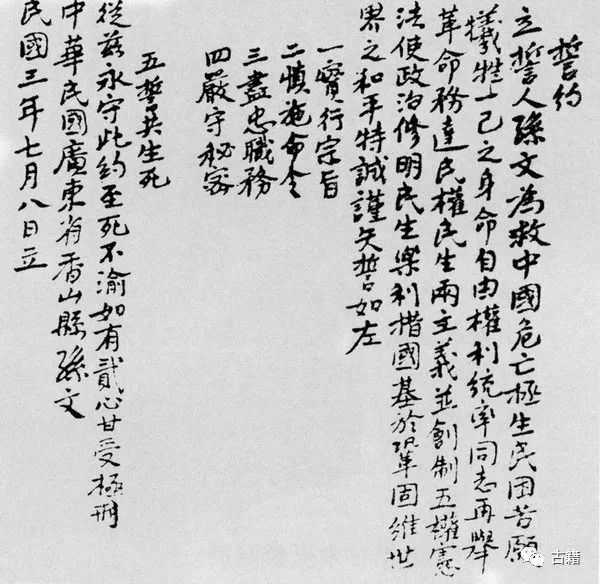 誓约
立誓人孫文為救中國危亡拯生民困苦願
犠牲一己之身命自由權利統率同志再舉
革命務達民權民生兩主義並創制五權憲
法使政治修明民生樂利措國基於鞏固維世
界之和平特誠謹矢誓如左
一實行宗旨
二慎施命令
三盡忠職務
四嚴守秘密
五誓共生死
從茲永守此約至死不渝如有貳心甘受極刑
中華民國廣東省香山縣孫文
民國三年七月八日立
古籍